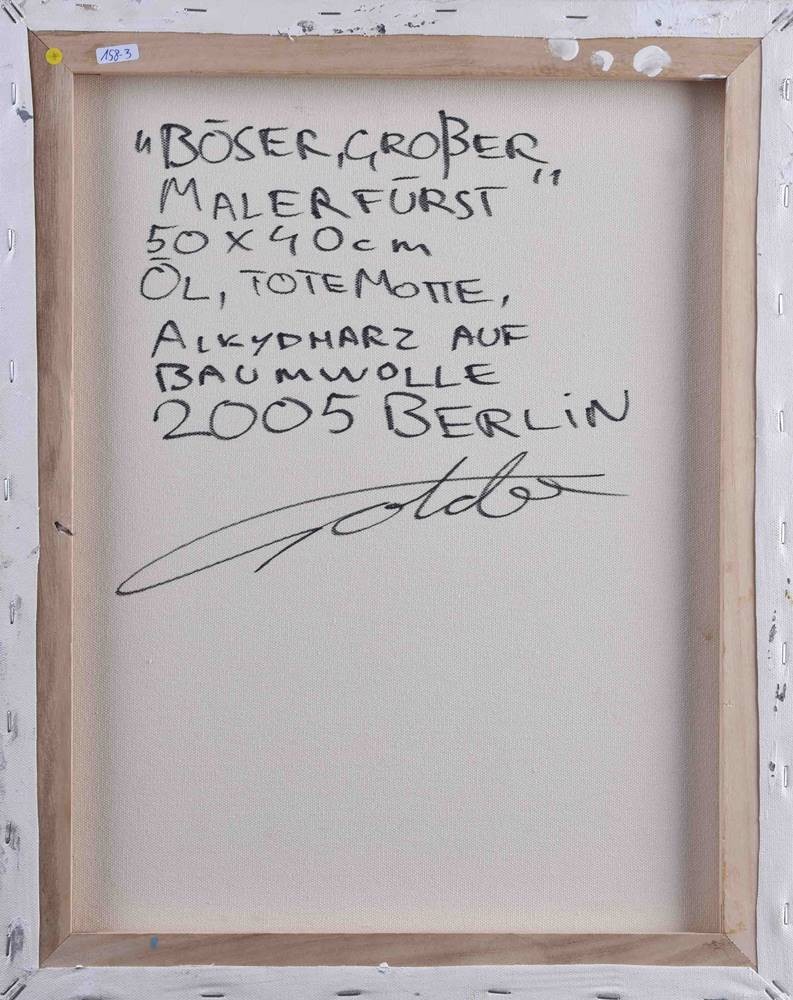 158-3
"BÖSER, GROßER
MALERFÜRST"
50 X 40 cm
ÖL, TOTE MOTTE,
ALKYDHARZ AUF
BAUMWOLLE
2005 BERLIN